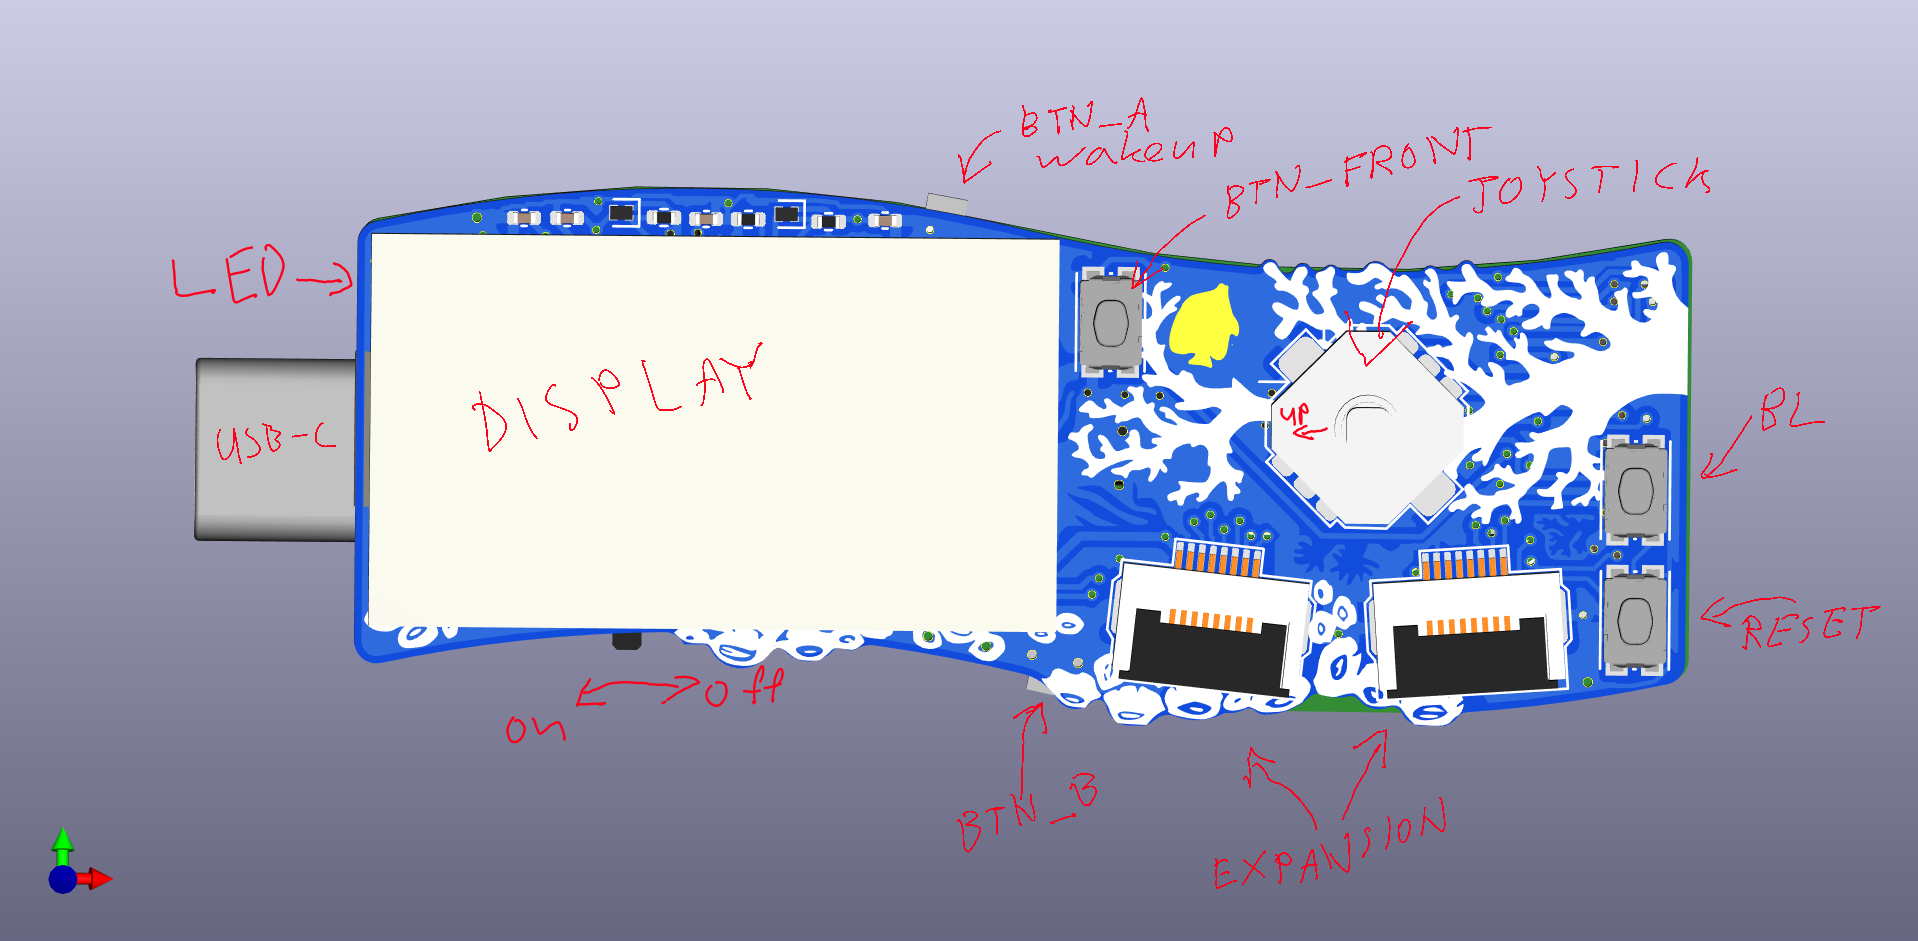 BTN_A
wakeup
BTN_FRONT
JOYSTICK
LED
DISPLAY
UP
USB-C
BL
RESET
off
on
BTN_B
EXPANSION